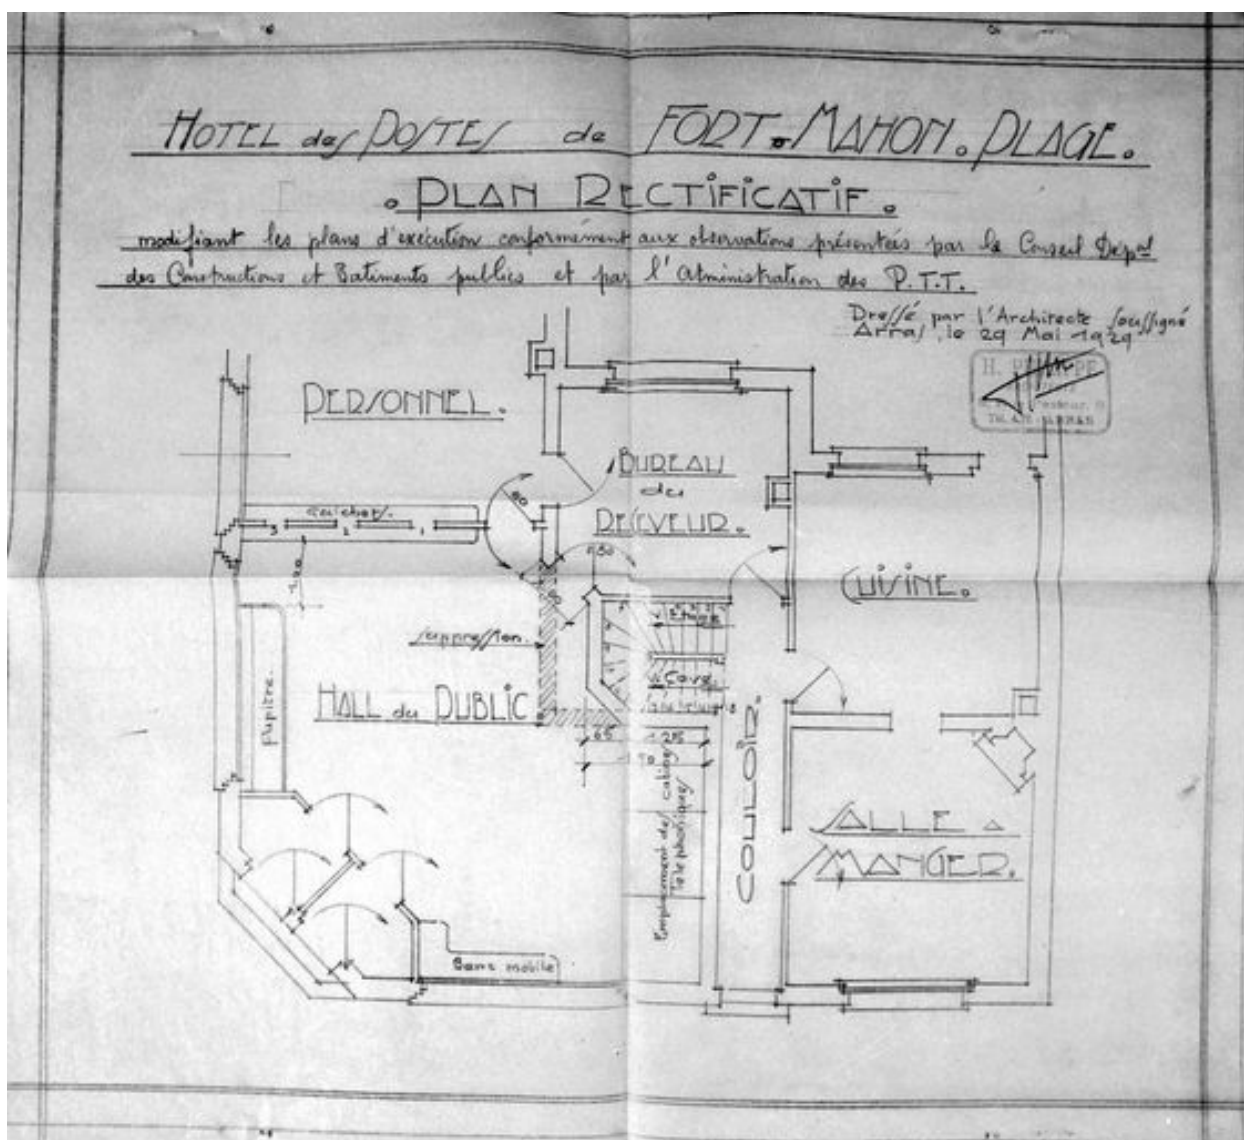 HOTEL des POSTES de FORT-MAHON. PLAGE.
. PLAN RECTIFICATIF .
modifiant les plans d'exécution conformément aux observations présentées par le Conseil Dépal
des Constructions et Batiments publics et par l'Administration des P.T.T.
Dressé par l'Architecte soussigné
Arras, le 29 Mai 1929
H. PHILIPPE
ARRAS
PERSONNEL.
BUREAU
du
RECEVEUR.
Guichets.
3 2 1
80
CUISINE.
suppression.
Etage
Cave
HALL du PUBLIC
Pupitre.
65 1.25
COULOIR.
Emplacement des cabines
Téléphoniques
SALLE A
MANGER.
Banc mobile